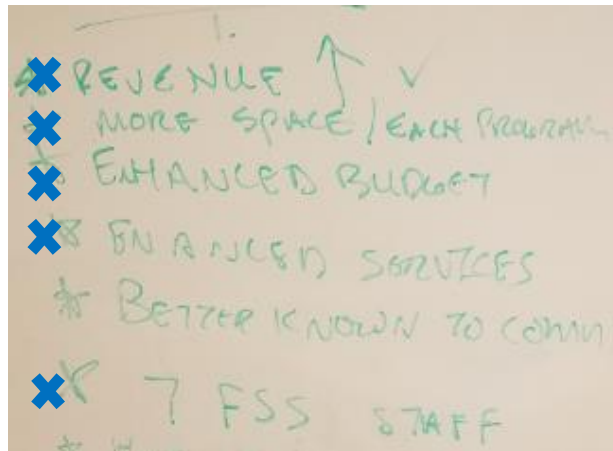 * REVENUE ↑ ✓
* MORE SPACE / EACH PROGRAM
* ENHANCED BUDGET
* ENANCED SERVICES
* BETTER KNOWN TO COMM
* 7 FSS STAFF